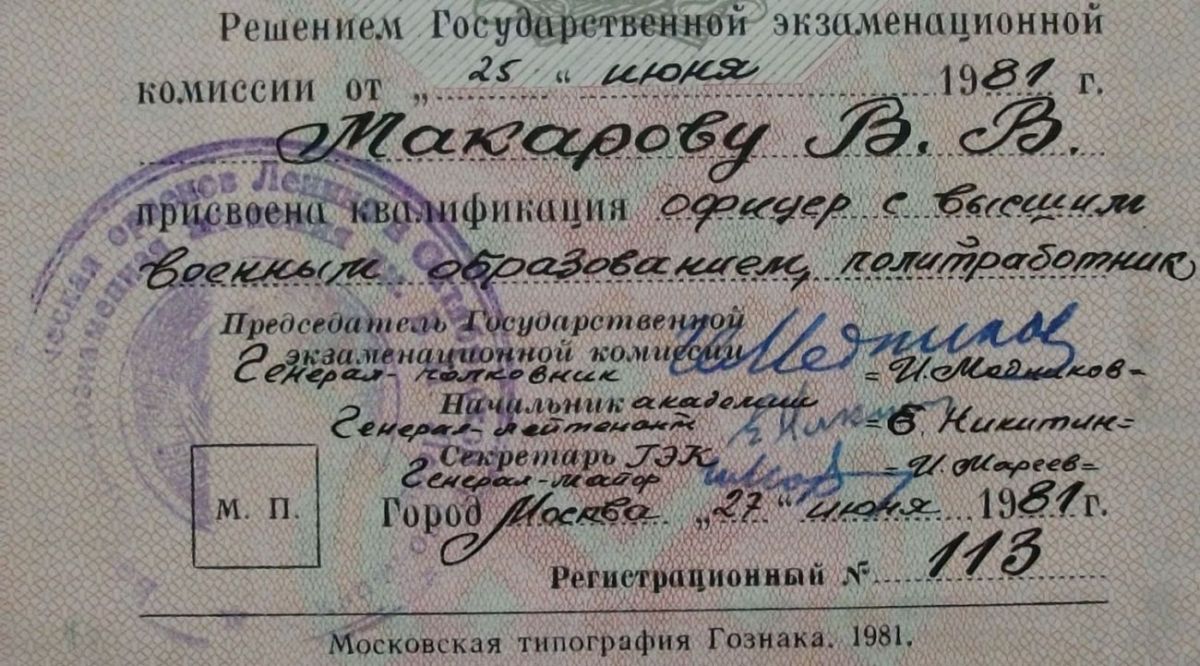 Решением Государственной экзаменационной
комиссии от „25“ июня 1981 г.
Макарову В. В.
присвоена квалификация офицер с высшим
военным образованием, политработник
Председатель Государственной
экзаменационной комиссии
Генерал-полковник =И. Медников=
Начальник академии
Генерал-лейтенант =Е. Никитин=
Секретарь ГЭК
Генерал-майор =И. Мареев=
М. П.
Город Москва „27“ июня 1981 г.
Регистрационный № 113
Московская типография Гознака. 1981.
орденов Ленина